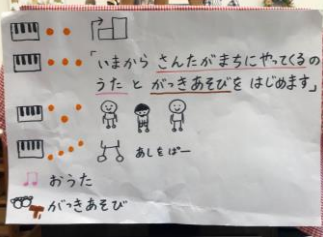 「いまから さんたがまちにやってくるの
うた と がっきあそびを はじめます」
あしをぱー
おうた
がっきあそび